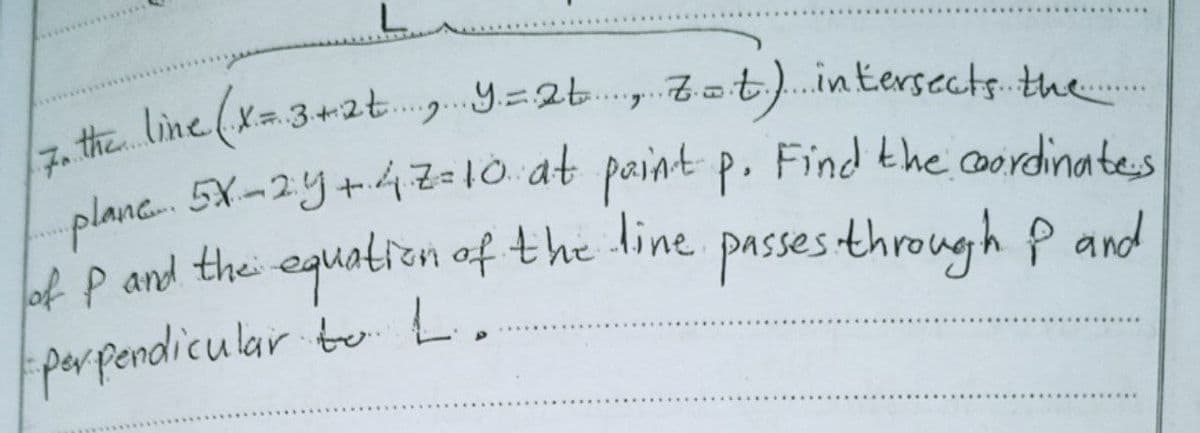 L
7. the line (x = 3+2t , y = 2t , z = t) intersects the
plane 5x - 2y + 4z = 10 at point p. Find the coordinates
of P and the equation of the line passes through P and
perpendicular to L.